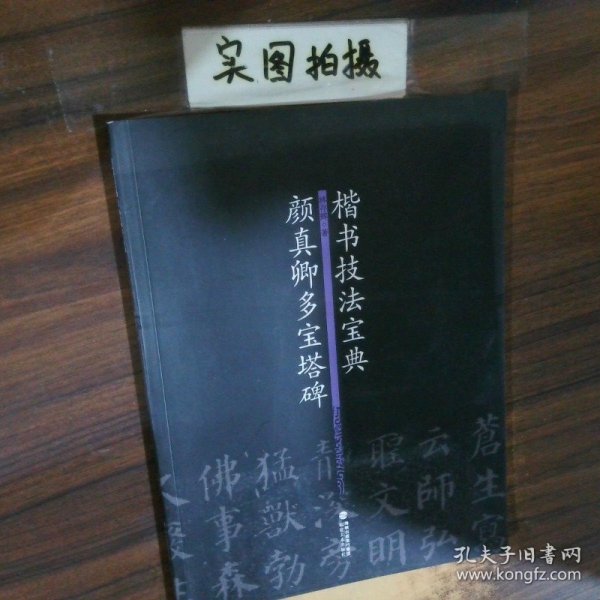 实图拍摄
楷书技法宝典
颜真卿多宝塔碑
著
蒼生寫
云師弘
聖文明
青溪
猛獸勃
佛事森
孔夫子旧书网
www.kongfz.com